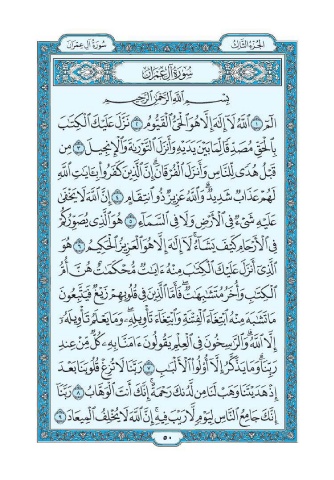 سُورَةُ آلِ عِمْرَان
الجُزْءُ الثَّالِث
سُورَةُ آلِ عِمْرَانَ
بِسْمِ اللَّهِ الرَّحْمَٰنِ الرَّحِيمِ
الٓمٓ ١ ٱللَّهُ لَآ إِلَٰهَ إِلَّا هُوَ ٱلْحَىُّ ٱلْقَيُّومُ ٢ نَزَّلَ عَلَيْكَ ٱلْكِتَٰبَ
بِٱلْحَقِّ مُصَدِّقًا لِّمَا بَيْنَ يَدَيْهِ وَأَنزَلَ ٱلتَّوْرَىٰةَ وَٱلْإِنجِيلَ ٣ مِن
قَبْلُ هُدًى لِّلنَّاسِ وَأَنزَلَ ٱلْفُرْقَانَ إِنَّ ٱلَّذِينَ كَفَرُوا۟ بِـَٔايَٰتِ ٱللَّهِ
لَهُمْ عَذَابٌ شَدِيدٌ وَٱللَّهُ عَزِيزٌ ذُو ٱنتِقَامٍ ٤ إِنَّ ٱللَّهَ لَا يَخْفَىٰ
عَلَيْهِ شَىْءٌ فِى ٱلْأَرْضِ وَلَا فِى ٱلسَّمَآءِ ٥ هُوَ ٱلَّذِى يُصَوِّرُكُمْ
فِى ٱلْأَرْحَامِ كَيْفَ يَشَآءُ لَآ إِلَٰهَ إِلَّا هُوَ ٱلْعَزِيزُ ٱلْحَكِيمُ ٦ هُوَ
ٱلَّذِىٓ أَنزَلَ عَلَيْكَ ٱلْكِتَٰبَ مِنْهُ ءَايَٰتٌ مُّحْكَمَٰتٌ هُنَّ أُمُّ
ٱلْكِتَٰبِ وَأُخَرُ مُتَشَٰبِهَٰتٌ فَأَمَّا ٱلَّذِينَ فِى قُلُوبِهِمْ زَيْغٌ فَيَتَّبِعُونَ
مَا تَشَٰبَهَ مِنْهُ ٱبْتِغَآءَ ٱلْفِتْنَةِ وَٱبْتِغَآءَ تَأْوِيلِهِۦ وَمَا يَعْلَمُ تَأْوِيلَهُۥٓ
إِلَّا ٱللَّهُ وَٱلرَّٰسِخُونَ فِى ٱلْعِلْمِ يَقُولُونَ ءَامَنَّا بِهِۦ كُلٌّ مِّنْ عِندِ
رَبِّنَا وَمَا يَذَّكَّرُ إِلَّآ أُو۟لُوا۟ ٱلْأَلْبَٰبِ ٧ رَبَّنَا لَا تُزِغْ قُلُوبَنَا بَعْدَ
إِذْ هَدَيْتَنَا وَهَبْ لَنَا مِن لَّدُنكَ رَحْمَةً إِنَّكَ أَنتَ ٱلْوَهَّابُ ٨ رَبَّنَآ
إِنَّكَ جَامِعُ ٱلنَّاسِ لِيَوْمٍ لَّا رَيْبَ فِيهِ إِنَّ ٱللَّهَ لَا يُخْلِفُ ٱلْمِيعَادَ ٩
٥٠